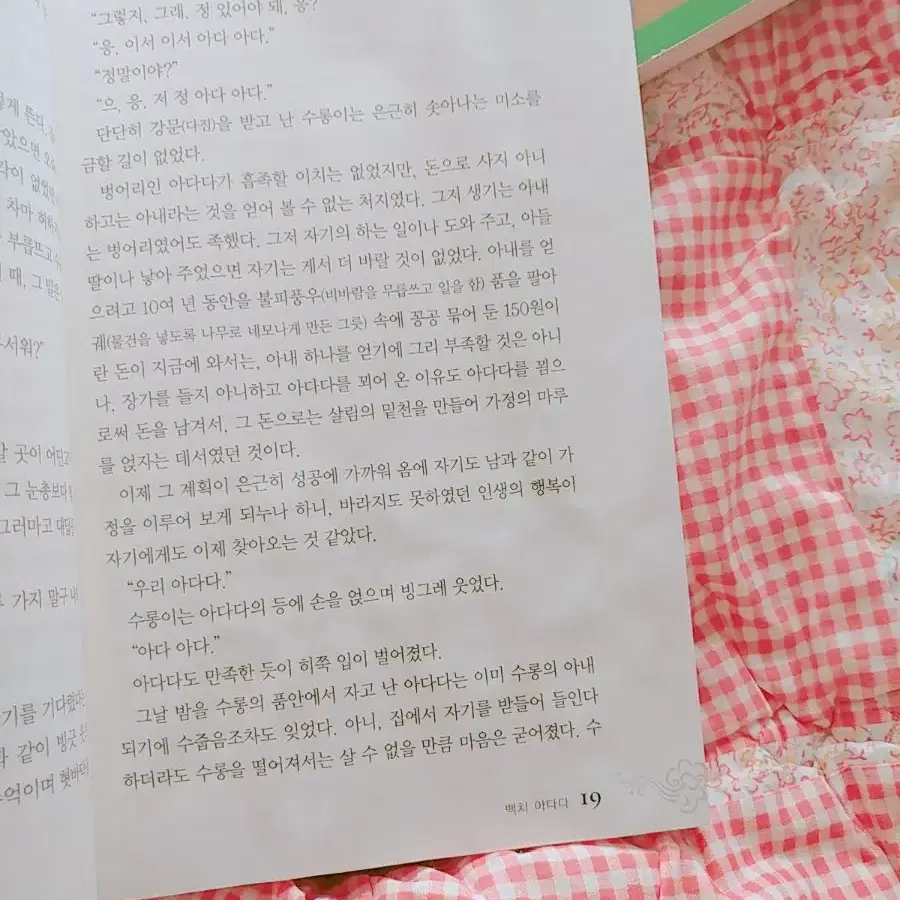 “그렇지, 그래, 정 있어야 돼, 응?
“응, 이서 이서 아다 아다.”
“정말이야?”
“으, 응, 저 정 아다 아다.”
단단히 강문(다짐)을 받고 난 수롱이는 은근히 솟아나는 미소를
금할 길이 없었다.
벙어리인 아다다가 흡족할 이치는 없었지만, 돈으로 사지 아니
하고는 아내라는 것을 얻어 볼 수 없는 처지였다. 그저 생기는 아내
는 벙어리였어도 족했다. 그저 자기의 하는 일이나 도와 주고, 아들
딸이나 낳아 주었으면 자기는 게서 더 바랄 것이 없었다. 아내를 얻
으려고 10여 년 동안을 불피풍우(비바람을 무릅쓰고 일을 함) 품을 팔아
궤(물건을 넣도록 나무로 네모나게 만든 그릇) 속에 꽁꽁 묶어 둔 150원이
란 돈이 지금에 와서는, 아내 하나를 얻기에 그리 부족할 것은 아니
나, 장가를 들지 아니하고 아다다를 꾀어 온 이유도 아다다를 꾐으
로써 돈을 남겨서, 그 돈으로는 살림의 밑천을 만들어 가정의 마루
를 얹자는 데서였던 것이다.
이제 그 계획이 은근히 성공에 가까워 옴에 자기도 남과 같이 가
정을 이루어 보게 되누나 하니, 바라지도 못하였던 인생의 행복이
자기에게도 이제 찾아오는 것 같았다.
“우리 아다다.”
수롱이는 아다다의 등에 손을 얹으며 빙그레 웃었다.
“아다 아다.”
아다다도 만족한 듯이 히쭉 입이 벌어졌다.
그날 밤을 수롱의 품안에서 자고 난 아다다는 이미 수롱의 아내
되기에 수줍음조차도 잊었다. 아니, 집에서 자기를 받들어 들인다
하더라도 수롱을 떨어져서는 살 수 없을 만큼 마음은 굳어졌다. 수
백치 아다다 19
았으면
각이 없었
차마
부릅뜨고
때, 그 말은
서워?”
곳이 어딘고
그 눈총보다
그러마고 대답을
가지 말구
기를 기다렸다
같이 빙긋
억이며